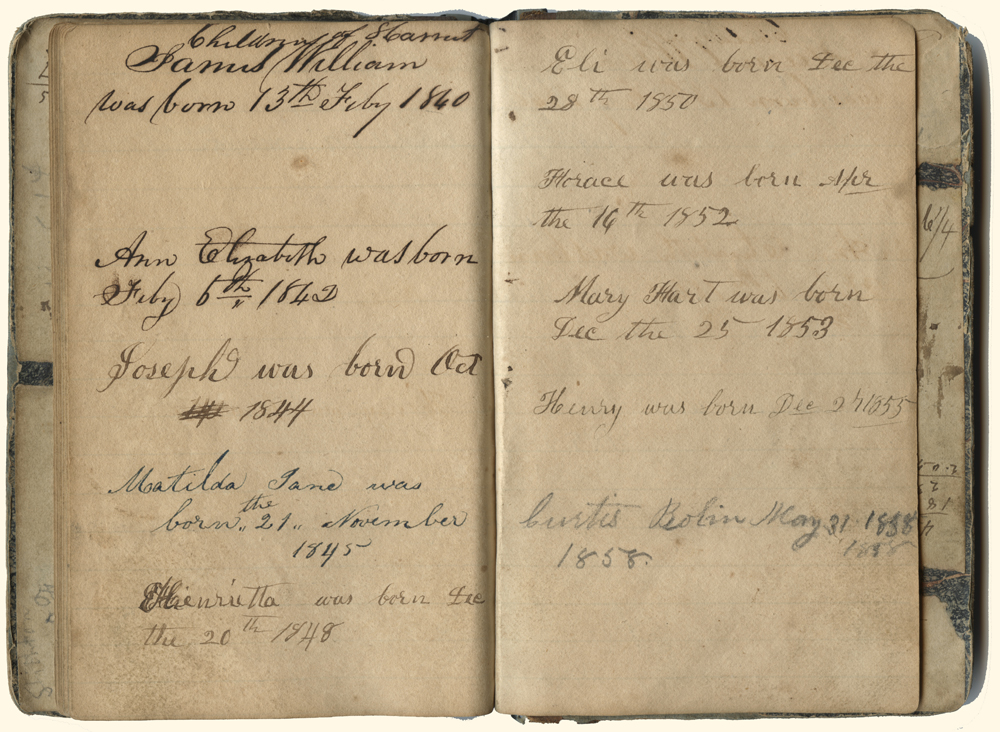 Children of Harriet
James William
was born 13th Feby 1840
Ann Elizabeth was born
Feby 6th 1842
Joseph was born Oct
1844
Matilda Jane was
born the 21 November
1845
Henrietta was born Dec
the 20th 1848
Eli was born Dec the
28th 1850
Horace was born Apr
the 16th 1852
Mary Hart was born
Dec the 25 1853
Henry was born Dec 1855
Curtis Bolin May 31 1858
1858
1858.
6/4